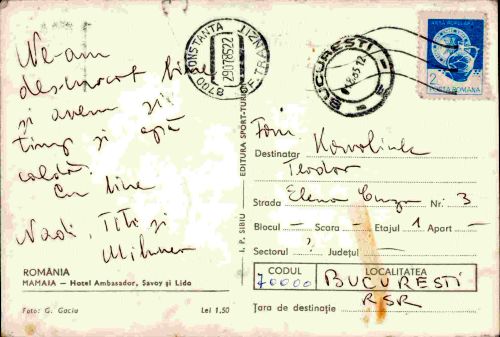 Ne-am
descurcat bine
și avem și
timp și apă
caldă.
Cu bine
Nadi, Titi și
ROMÂNIA
MAMAIA — Hotel Ambasador, Savoy și Lido
Foto: G. Gaciu Lei 1,50
EDITURA SPORT-TURISM
I. P. SIBIU
8700 CONSTANTA
29.07.85.22
TRANZIT
BUCUREȘTI
POSTA ROMANA
Fam.
Destinatar
Teodor
Strada Elena Cuza Nr. 3
Blocul — Scara — Etajul 1 Apart —
Sectorul ? Județul —
CODUL LOCALITATEA
70000 BUCUREȘTI
RSR
Țara de destinație